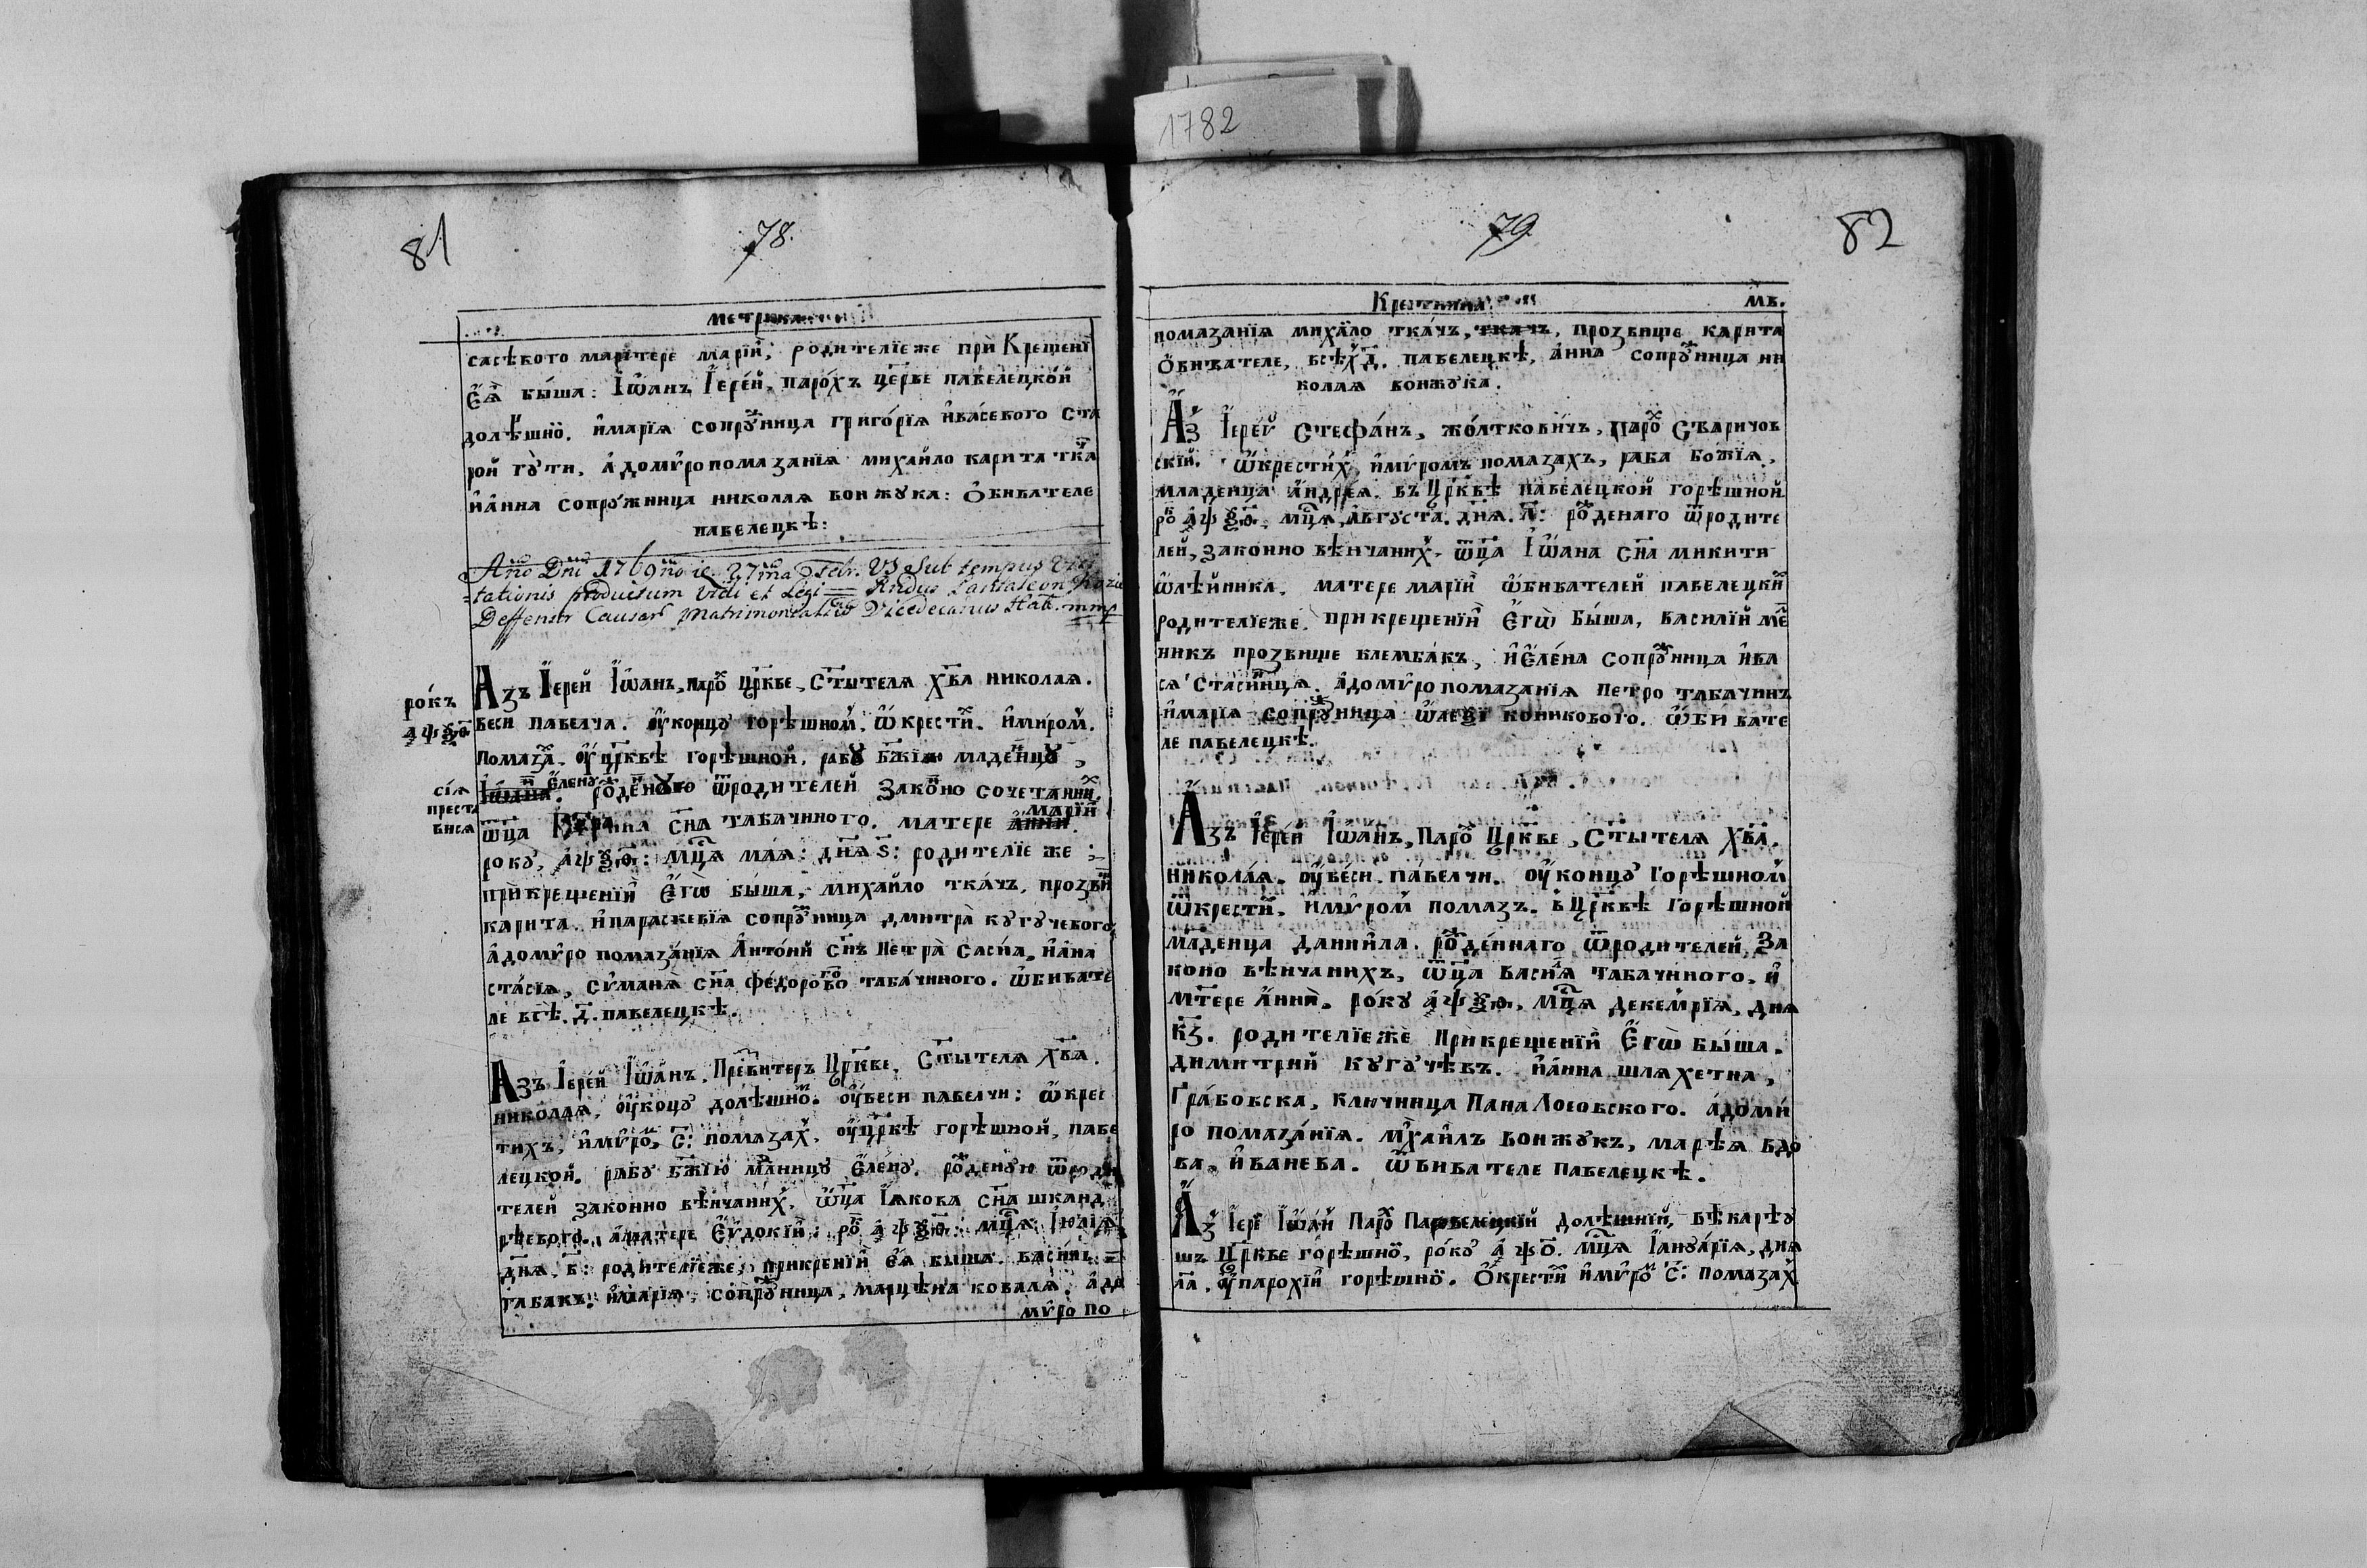 1782
81
78.
метрика
сасѣвого маⷬ҇тере марїи҆; родителїеже при Крещенї
є҆ѧ̀ бы́ша: Іѡ҆анъ І҆ере́й, паро́хъ це҃рве павелецкой
долѣшнѡ҆. и҆марїѧ сопрꙋ́ница григо́рїѧ и҆ва́севого ста
рой гꙋ̀ти, а҆ домѵ́ропомазанїѧ михайло карита тка
и҆а҆нна сопрꙋ́жница николаѧ вонжꙋка: ѻ҆бивателе
павелецкѣ:
Año Dni 1769no ie 27ma 7br. VS Sub tempus Visi
tationis productum Vidi et Legi = Andus Pantaleon
Deffensor Causar Matrimonialiu Vicedecanus Hali. mmp
рокъ
҂аѱѯѳ
Азъ І҆ерей І҆ѡанъ, паро́ црк҃ве, Ст҃ытелѧ Хв҃а николаѧ.
веси павелча. ᲂу҆концꙋ горѣшноⷨ. ѡ҆крестиⷯ. и҆мироⷨ.
помазаⷯ. ᲂу҆ црк҃вѣ горѣшной. рабꙋ бж҃їю младенцꙋ,
сїѧ
преста
висѧ
І҆ѡанна. є҆ленꙋ роⷤденꙋю ѿродителей Законо сочетанниⷯ.
ѿца сн҃а табачиного. матере а҆нни. марїи
рокꙋ, ҂аѱѯѳ: мцⷭ҇а маѧ: дн҃ѧ ѕ: родителїе же
прѝкрещенїи҆ є҆гѡ̀ бы́ша, михайло ткачъ, прозви
карита. и҆параскевїѧ сопрꙋⷤница дмитра̀ кꙋгꙋчевого,
а҆домѵ́ро помаза́нїѧ А҆нто́нй сн҃ъ петра̀ саси́а, и҆а҆на
ста́сїѧ, сѵ́мана̀ сн҃а фе́дорово таба́чиного. ѡ҆бивате
ле всѣ. д҃. павелецкѣ.
Азъ І҆ере́й І҆ѡанъ, Пре́витеръ Црк҃ве, Ст҃ытелѧ Хв҃а.
николаѧ, ᲂу҆концꙋ долѣшноⷨ. ᲂу҆веси павелчи: ѡ҆крес
тихъ, и҆мѵ́роⷨ, с҃: помазаⷯ, ᲂу҆црк҃вѣ горѣшной, паве
лецкой. рабꙋ бж҃їю мл҃ницꙋ є҆ле́нꙋ. роⷤденꙋю ѿроди
телей законно вѣнчанниⷯ, ѿца І҆ѧкова сн҃а шканд
рѣевого. а҆матере Е҆ѵдокїи: ро҃ ҂аѱѯѳ: мцⷭ҇а І҆юлїа
дн҃ѧ. в҃: родителїеже, прикренїи҆ е҆ѧ бы́ша. васи́ль =
табакъ. и҆марїѧ, сопрꙋⷤница, марцѣ́на ковалѧ. а҆до
мѵ́ро по
79
82
Крестинна
мв.
помазанїѧ миха́йло тка́чъ, ткачъ, прозвище карита
ѻ҆бивателе, всѣⷯ д҃. павелецкѣ, а҆нна сопрꙋⷤница ни
колаѧ вонжꙋка.
Аз І҆ере́й Стефа́нъ, жо́лтковичъ, паро́ Сваричов
скїй. ѡ҆крести́ⷯ, и҆мѵ́ромъ помазахъ, раба бо́жїѧ,
младенца а҆ндре́ѧ. въ Црк҃вѣ павелецкой горѣшной
ро҃ ҂аѱѯѳ. мцⷭ҇а, а҆вгꙋста. дн҃ѧ. л҃: роⷤденаго ѿродите
лей, законно вѣнчанниⷯ. ѿца І҆ѡана сн҃а микити
ѡ҆лѣйника. матере марїи҆ ѡ҆бивателей павелецкиⷯ
родителїеже. прикрещенїи҆ є҆гѡ̀ бы́ша, василїй ме
никъ прозвище клемба́къ, и҆є҆ле́на сопрꙋⷤница и҆ва
сѧ Стаси́нцѧ. а҆домѵ́ро помазанїѧ петро табачинъ
и҆марїѧ сопрꙋⷤница ѡ҆леѯі коникового. ѡ҆бивате
ле павелецкѣ.
Азъ І҆ере́й І҆ѡа́нъ, паро́ Црк҃ве, Ст҃ытелѧ Хв҃а.
никола́ѧ. ᲂу҆ве́си. па́велчи. ᲂу҆концꙋ горѣшноⷨ
ѿкрестиⷯ. и҆мѵ́роⷨ помазъ. вЦрк҃вѣ горѣшной
мл҃денца данїила. роⷤде́ннаго ѿродителей, За
коно вѣнчанихъ, ѿца васи́лѧ табачиного, и҆
мт҃ере а҆нни̑. ро́кꙋ ҂аѱѯѳ, мцⷭ҇а декемрїѧ, днѧ
к҃з. родителїежѐ прѝкрещенїи҆ є҆гѡ̀ бы́ша.
димитрий кꙋгꙋчѣвъ. и҆а҆нна шлѧхетна,
Гра́бовска, ключница Пана Лосовского. а҆доми́
ро помаза́нїѧ. мїхаи́лъ вонжꙋкъ, марѣѧ вдо
ва, и҆ванева. ѡ҆бивателе павелецкѣ.
Аз І҆ере́ І҆ѡа́н Паро́ Павелецкїй долѣшнїй, вѣкарѣꙋ
шъ Црк҃ве го́рѣшнѡ҆, ро́кꙋ ҂аѱо. мцⷭ҇а І҆анꙋа́рїѧ, днѧ
л҃а. ᲂу҆парохїи҆ горѣшнѡ҆. Ѻ҆крестиⷯ и҆мѵ́роⷨ с҃: помазаⷯ